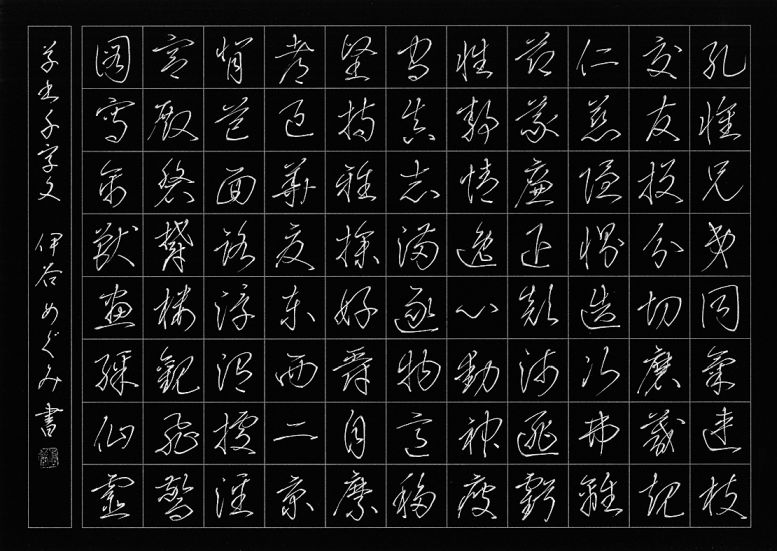 孔懷兄弟同氣連枝
交友投分切磨箴規
仁慈隱惻造次弗離
節義廉退顛沛匪虧
性靜情逸心動神疲
守真志滿逐物意移
堅持雅操好爵自縻
都邑華夏東西二京
背芒面洛浮渭據涇
宮殿盤鬱樓觀飛驚
圖寫禽獸畫綵仙靈
草書千字文 伊谷めぐみ書